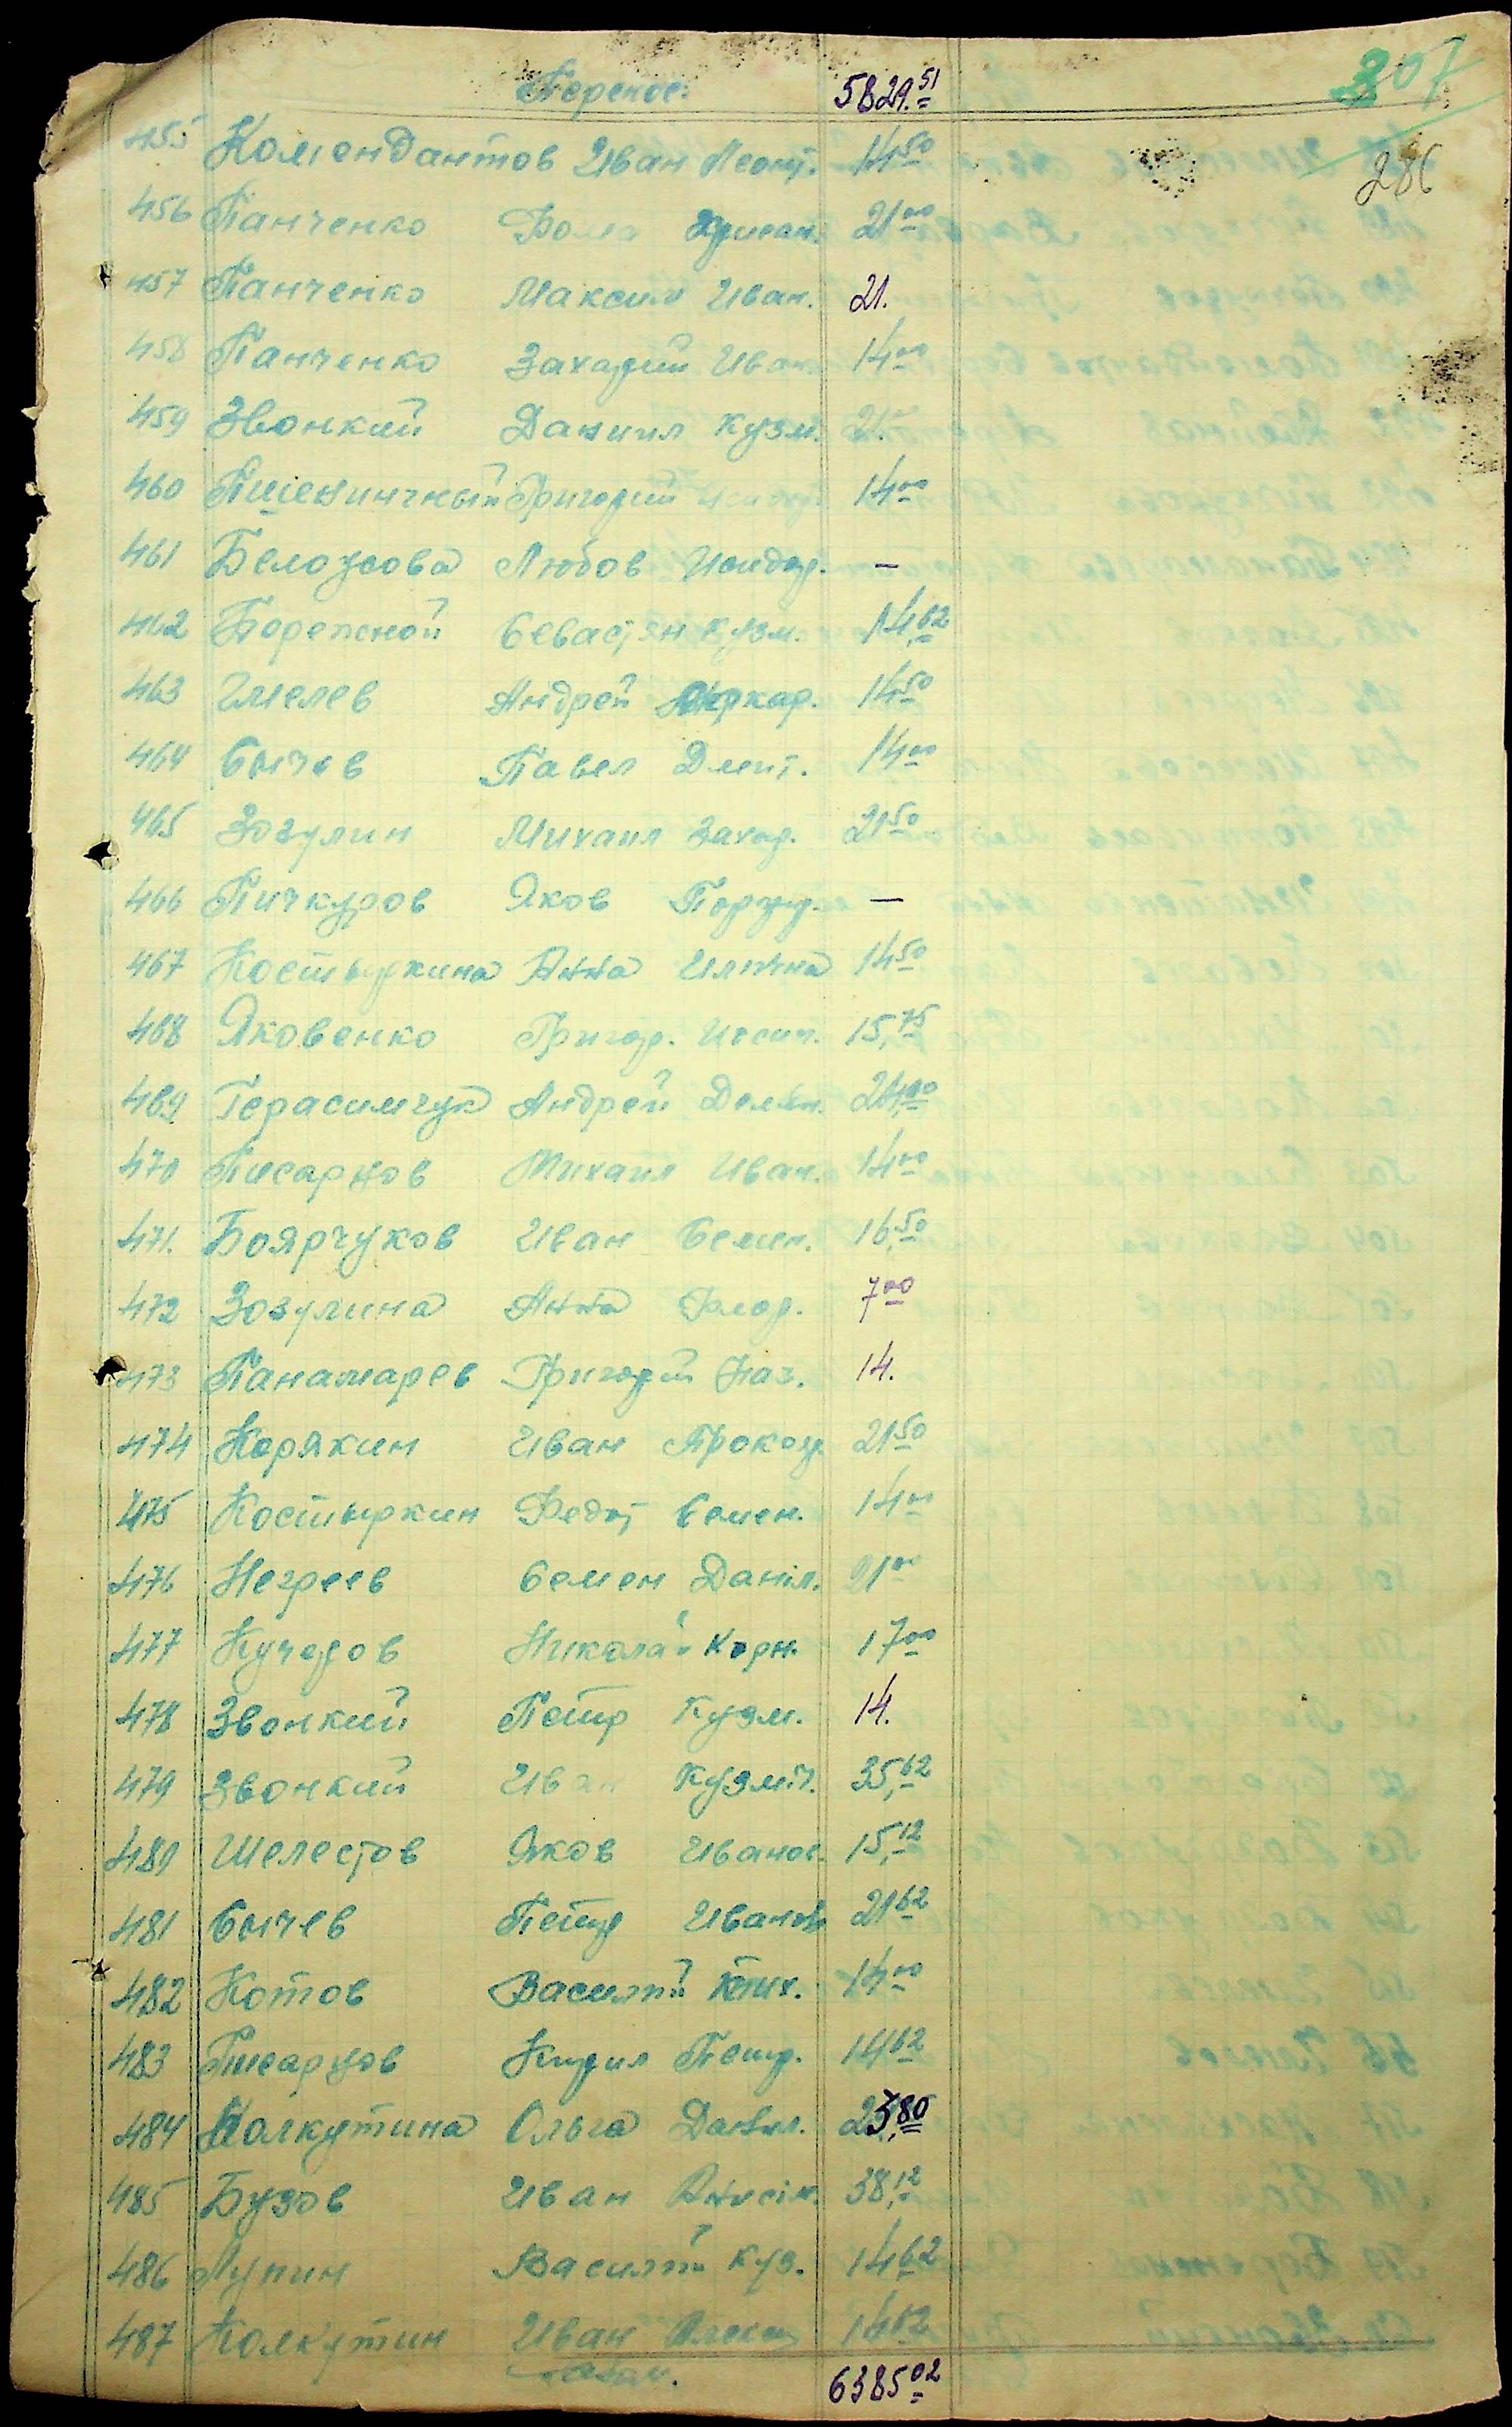 307
286
Перенос. 5829.51
455 Комендантов Иван Леонт. 14 50
456 Панченко Фома Хрисан. 21 00
457 Панченко Максим Иван. 21.
458 Панченко Захарий Иван. 14 00
459 Звонкий Даниил Кузм. 21.
460 Пшеничный Григорий 14 00
461 Белоусова Любов Исидор. —
462 Бережной Севастян Кузм. 14,62
463 Гмелев Андрей 14 50
464 Сычев Павел Дмит. 14 00
465 Зозулин Михаил Захар. 21 50
466 Пичкуров Яков —
467 Костыркина Анна Илична 14 50
468 Яковенко Григор. 15,75
469 Герасимчук Андрей Демян. 24,00
470 Писарцов Михаил Иван. 14 00
471. Боярчуков Иван Семен. 16,50
472 Зозулина Анна Флор. 7 00
473 Панамарев Григорий Наз. 14.
474 Корякин Иван Прокоф. 21 50
475 Костыркин Федот Семен. 14 00
476 Негреев Семен Данил. 21 00
477 Кучеров Николай Корн. 17 00
478 Звонкий Петр Кузм. 14.
479 Звонкий Иван Кузмич. 35,62
480 Шелестов Яков Иванов. 15,12
481 Сычев Петр Иванов 21 62
482 Котов Василий Тих. 14 00
483 Писарцов Кирил Петр. 14 62
484 Колкутина Ольга Данил. 23,80
485 Бузов Иван Анисим. 38,12
486 Лупин Василий Куз. 14 62
487 Колкутин Иван Алекса 14 62
6385 02